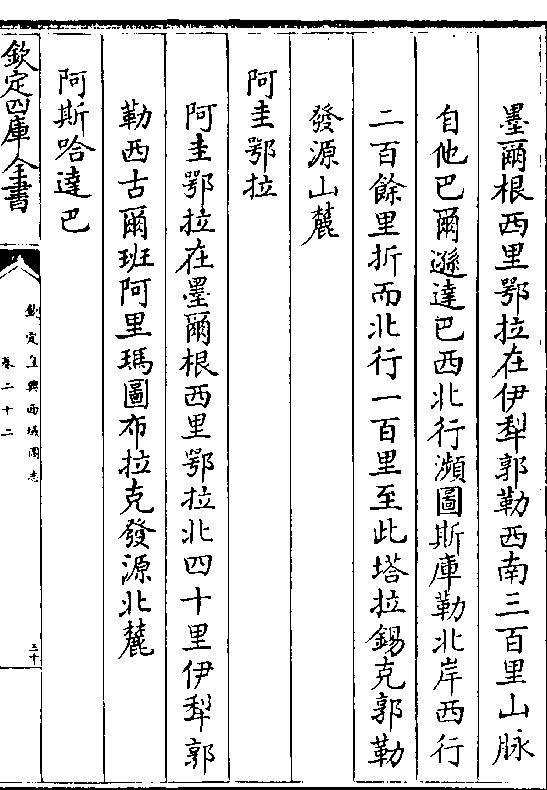 墨爾根西里鄂拉在伊犁郭勒西南三百里山脉
自他巴爾遜達巴西北行瀕圖斯庫勒北岸西行
二百餘里折而北行一百里至此塔拉錫克郭勒
發源山麓
阿圭鄂拉
阿圭鄂拉在墨爾根西里鄂拉北四十里伊犁郭
勒西古爾班阿里瑪圖布拉克發源北麓
阿斯哈達巴
欽定四庫全書
欽定皇輿西域圖志
卷二十二
三十